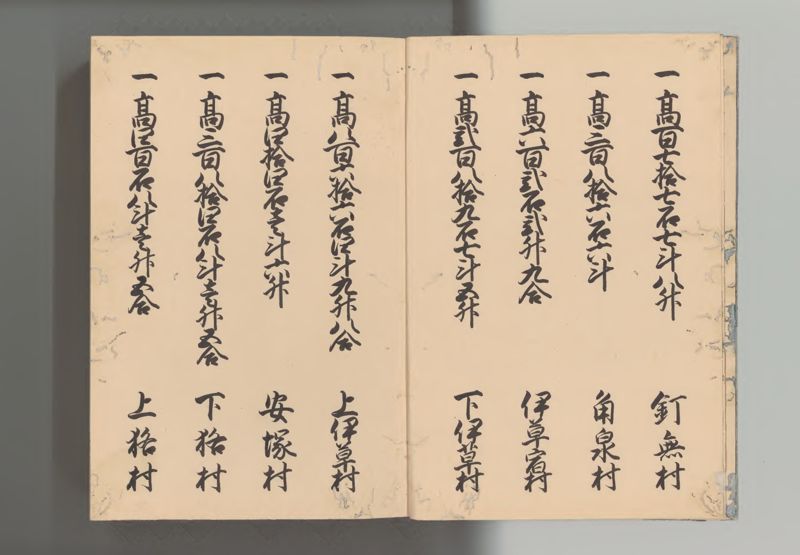 一高百七拾七石七斗八升 釘無村
一高三百八拾六石六斗 角泉村
一高六百弐石弐升九合 伊草宿村
一高弐百八拾九石七斗五升 下伊草村
一高八百六拾六石四斗九升八合 上伊草村
一高四拾四石壱斗六升 安塚村
一高三百八拾四石八斗壱升五合 下狢村
一高四百石八斗壱升五合 上狢村